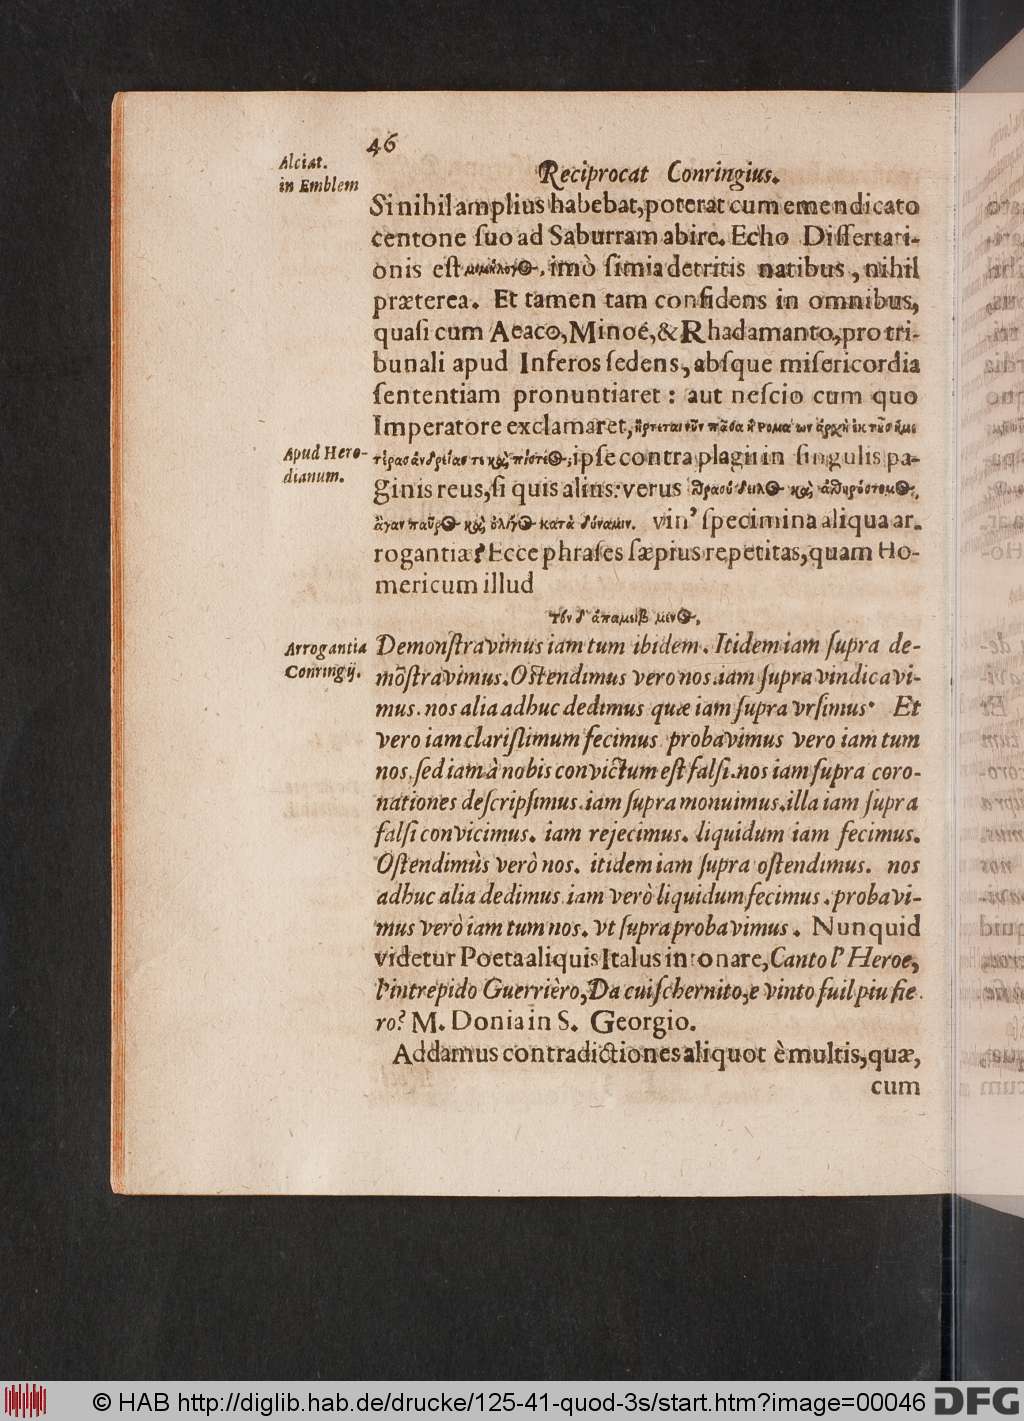 46
Alciat.
in Emblem
Reciprocat Conringius.
Si nihil amplius habebat, poterat cum emendicato
centone ſuo ad Saburram abire. Echo Diſſertati-
onis eſt imò ſimia detritis natibus, nihil
præterea. Et tamen tam confidens in omnibus,
quaſi cum Aeaco, Minoé, & Rhadamanto, pro tri-
bunali apud Inferos ſedens, abſque miſericordia
ſententiam pronuntiaret: aut neſcio cum quo
Imperatore exclamaret, ἤρτεται νῦν πᾶσα ἡ Ρομα ων ἀρχὴ ἐκ
Apud Hero-
dianum.
ἀνδρείας τε καὶ πίστεως, ipſe contra plagii in ſingulis pa-
ginis reus, ſi quis alius: verus θρασύδειλος καὶ ἀθυρόστομος,
ἄγαν παῦρος καὶ ὀλίγος κατὰ δύναμιν. vin' ſpecimina aliqua ar-
rogantiæ? Ecce phraſes ſæpius repetitas, quam Ho-
mericum illud
τὸν δ' ἀπαμειβόμενος,
Arrogantia
Conringij.
Demonſtravimus iam tum ibidem. Itidem iam ſupra de-
mōſtravimus. Oſtendimus vero nos. iam ſupra vindicavi-
mus. nos alia adhuc dedimus quæ iam ſupra vrſimus. Et
vero iam clariſſimum fecimus. probavimus vero iam tum
nos. ſed iam à nobis convictum eſt falſi. nos iam ſupra coro-
nationes deſcripſimus. iam ſupra monuimus. illa iam ſupra
falſi convicimus. iam rejecimus. liquidum iam fecimus.
Oſtendimùs verò nos. itidem iam ſupra oſtendimus. nos
adhuc alia dedimus. iam verò liquidum fecimus. probavi-
mus verò iam tum nos. vt ſupra probavimus. Nunquid
videtur Poeta aliquis Italus intonare, Canto l' Heroe,
l'intrepido Guerrièro, Da cui ſchernito, e vinto fu il piu fie
ro? M. Donia in S. Georgio.
Addamus contradictiones aliquot è multis, quæ,
cum
© HAB http://diglib.hab.de/drucke/125-41-quod-3s/start.htm?image=00046
DFG